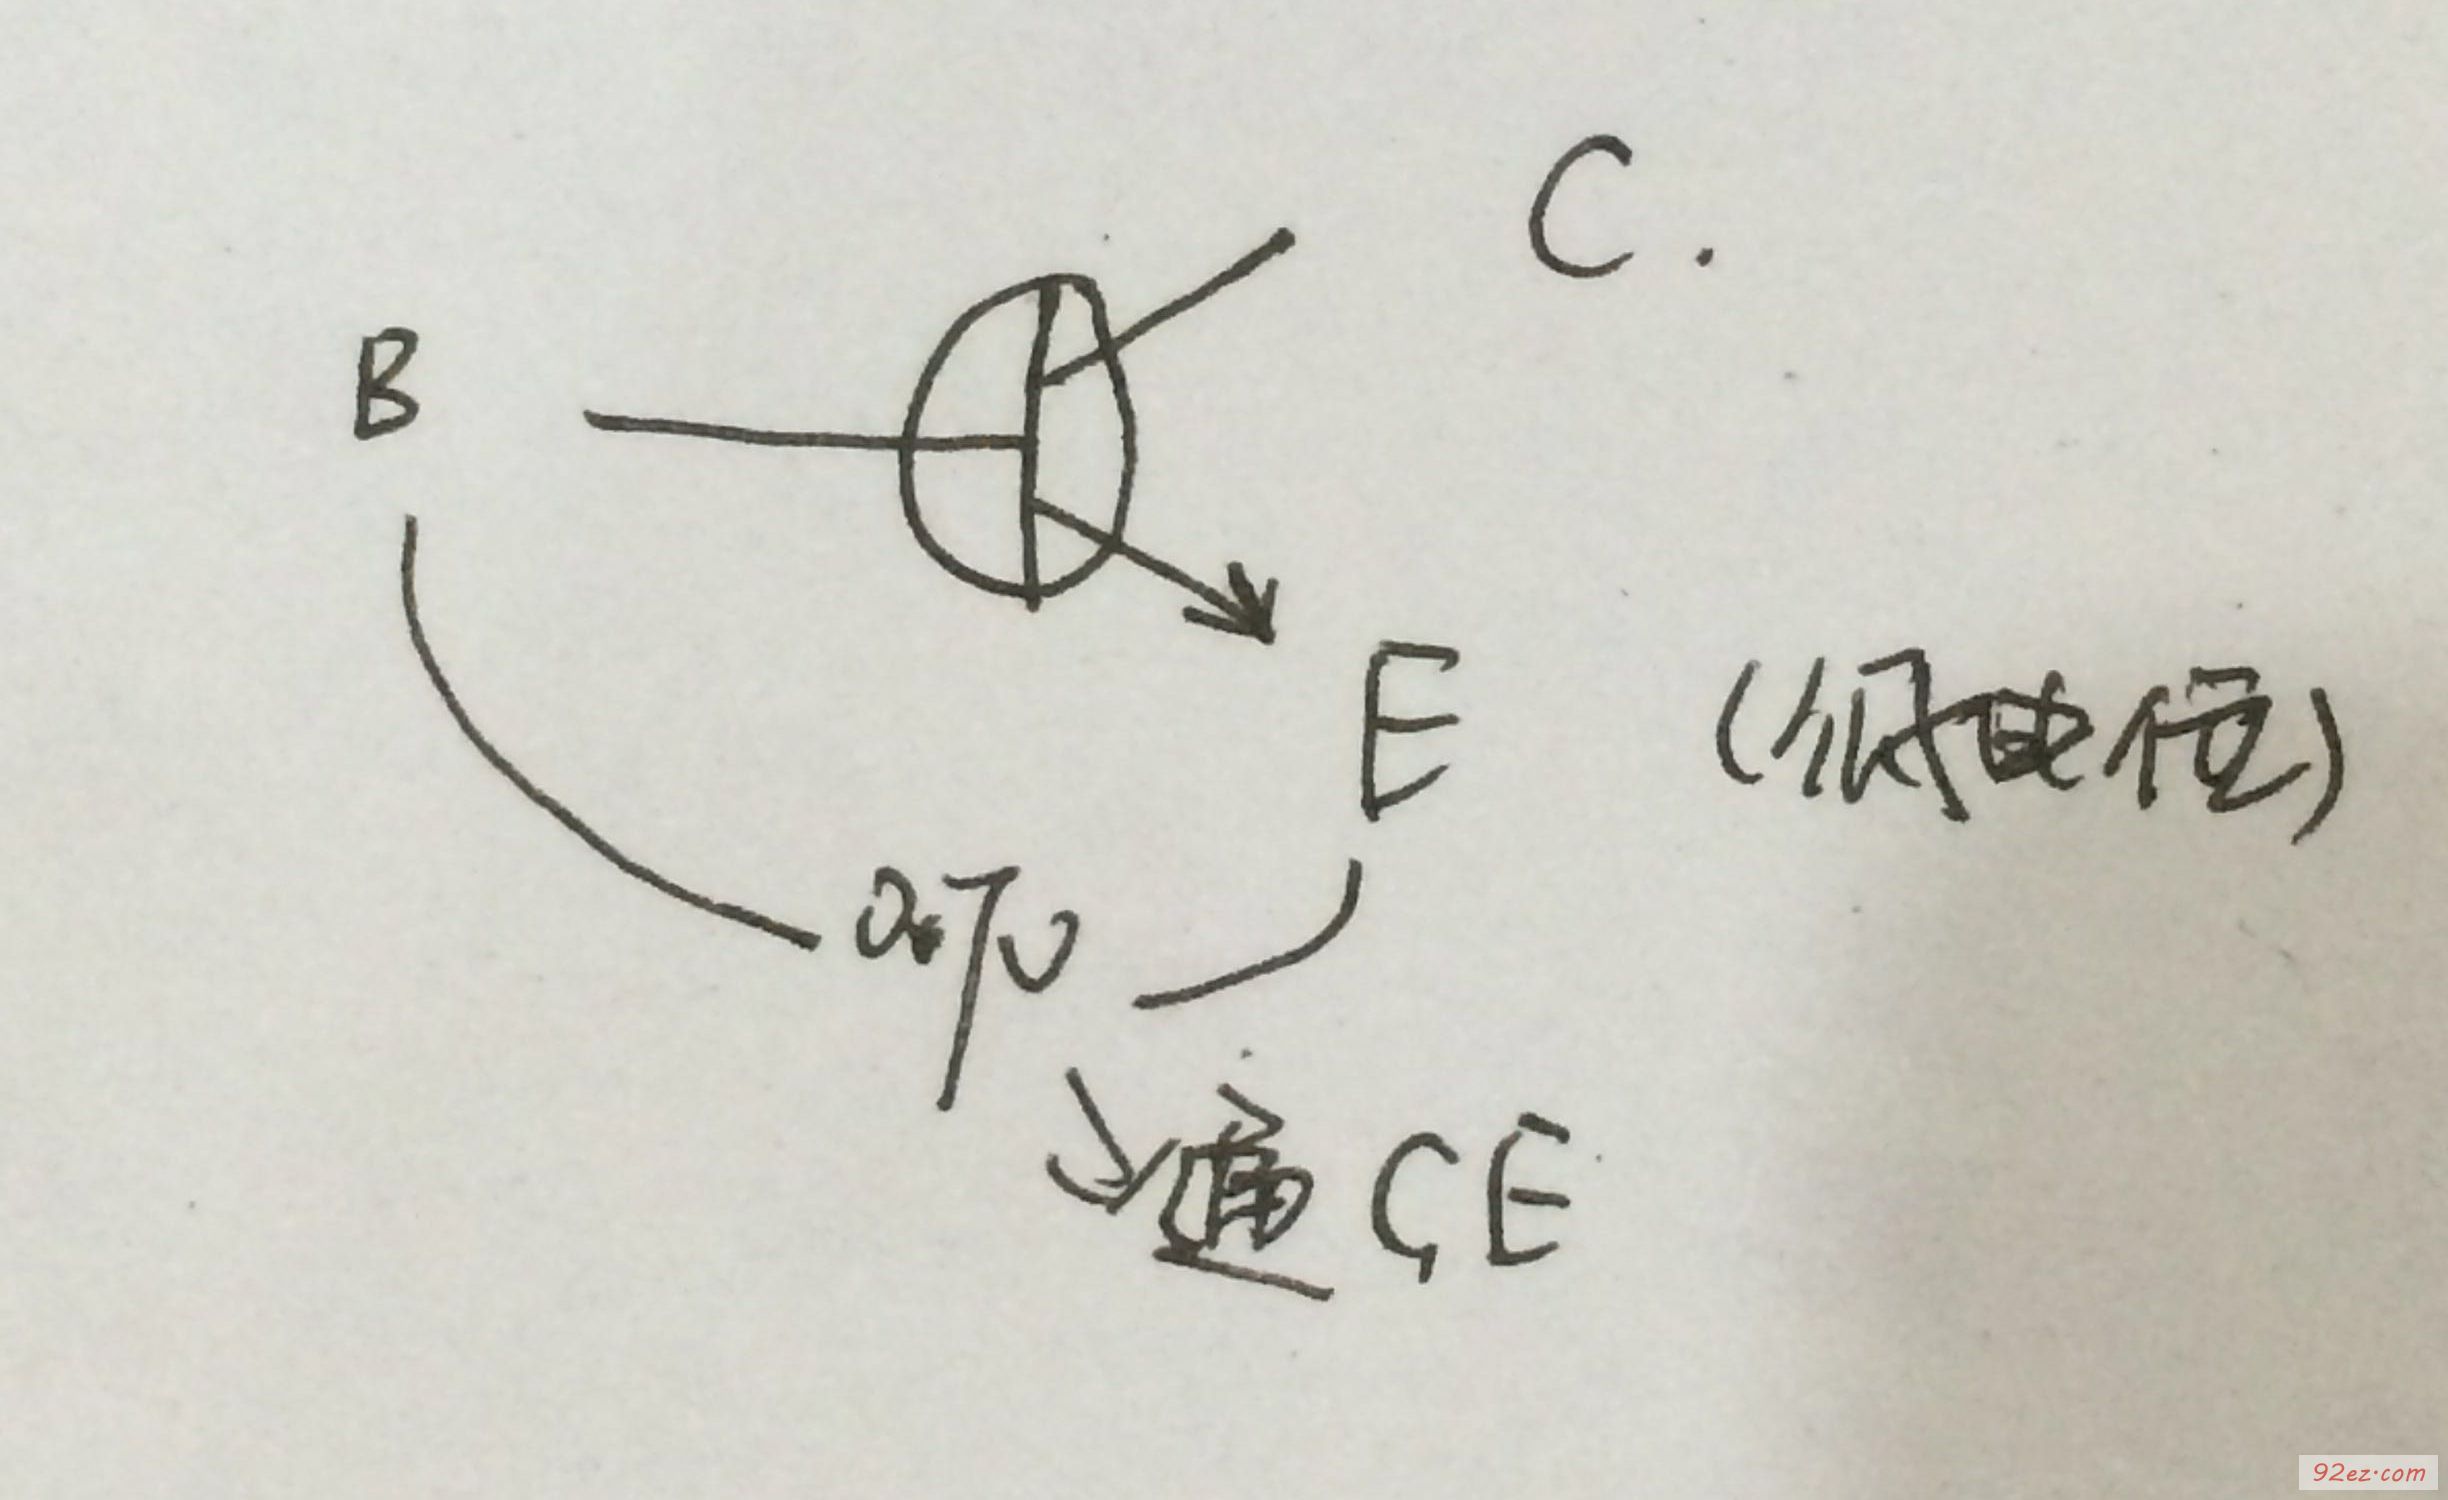 C.
B
E (低电位)
0.7v
通 C,E
92ez.com